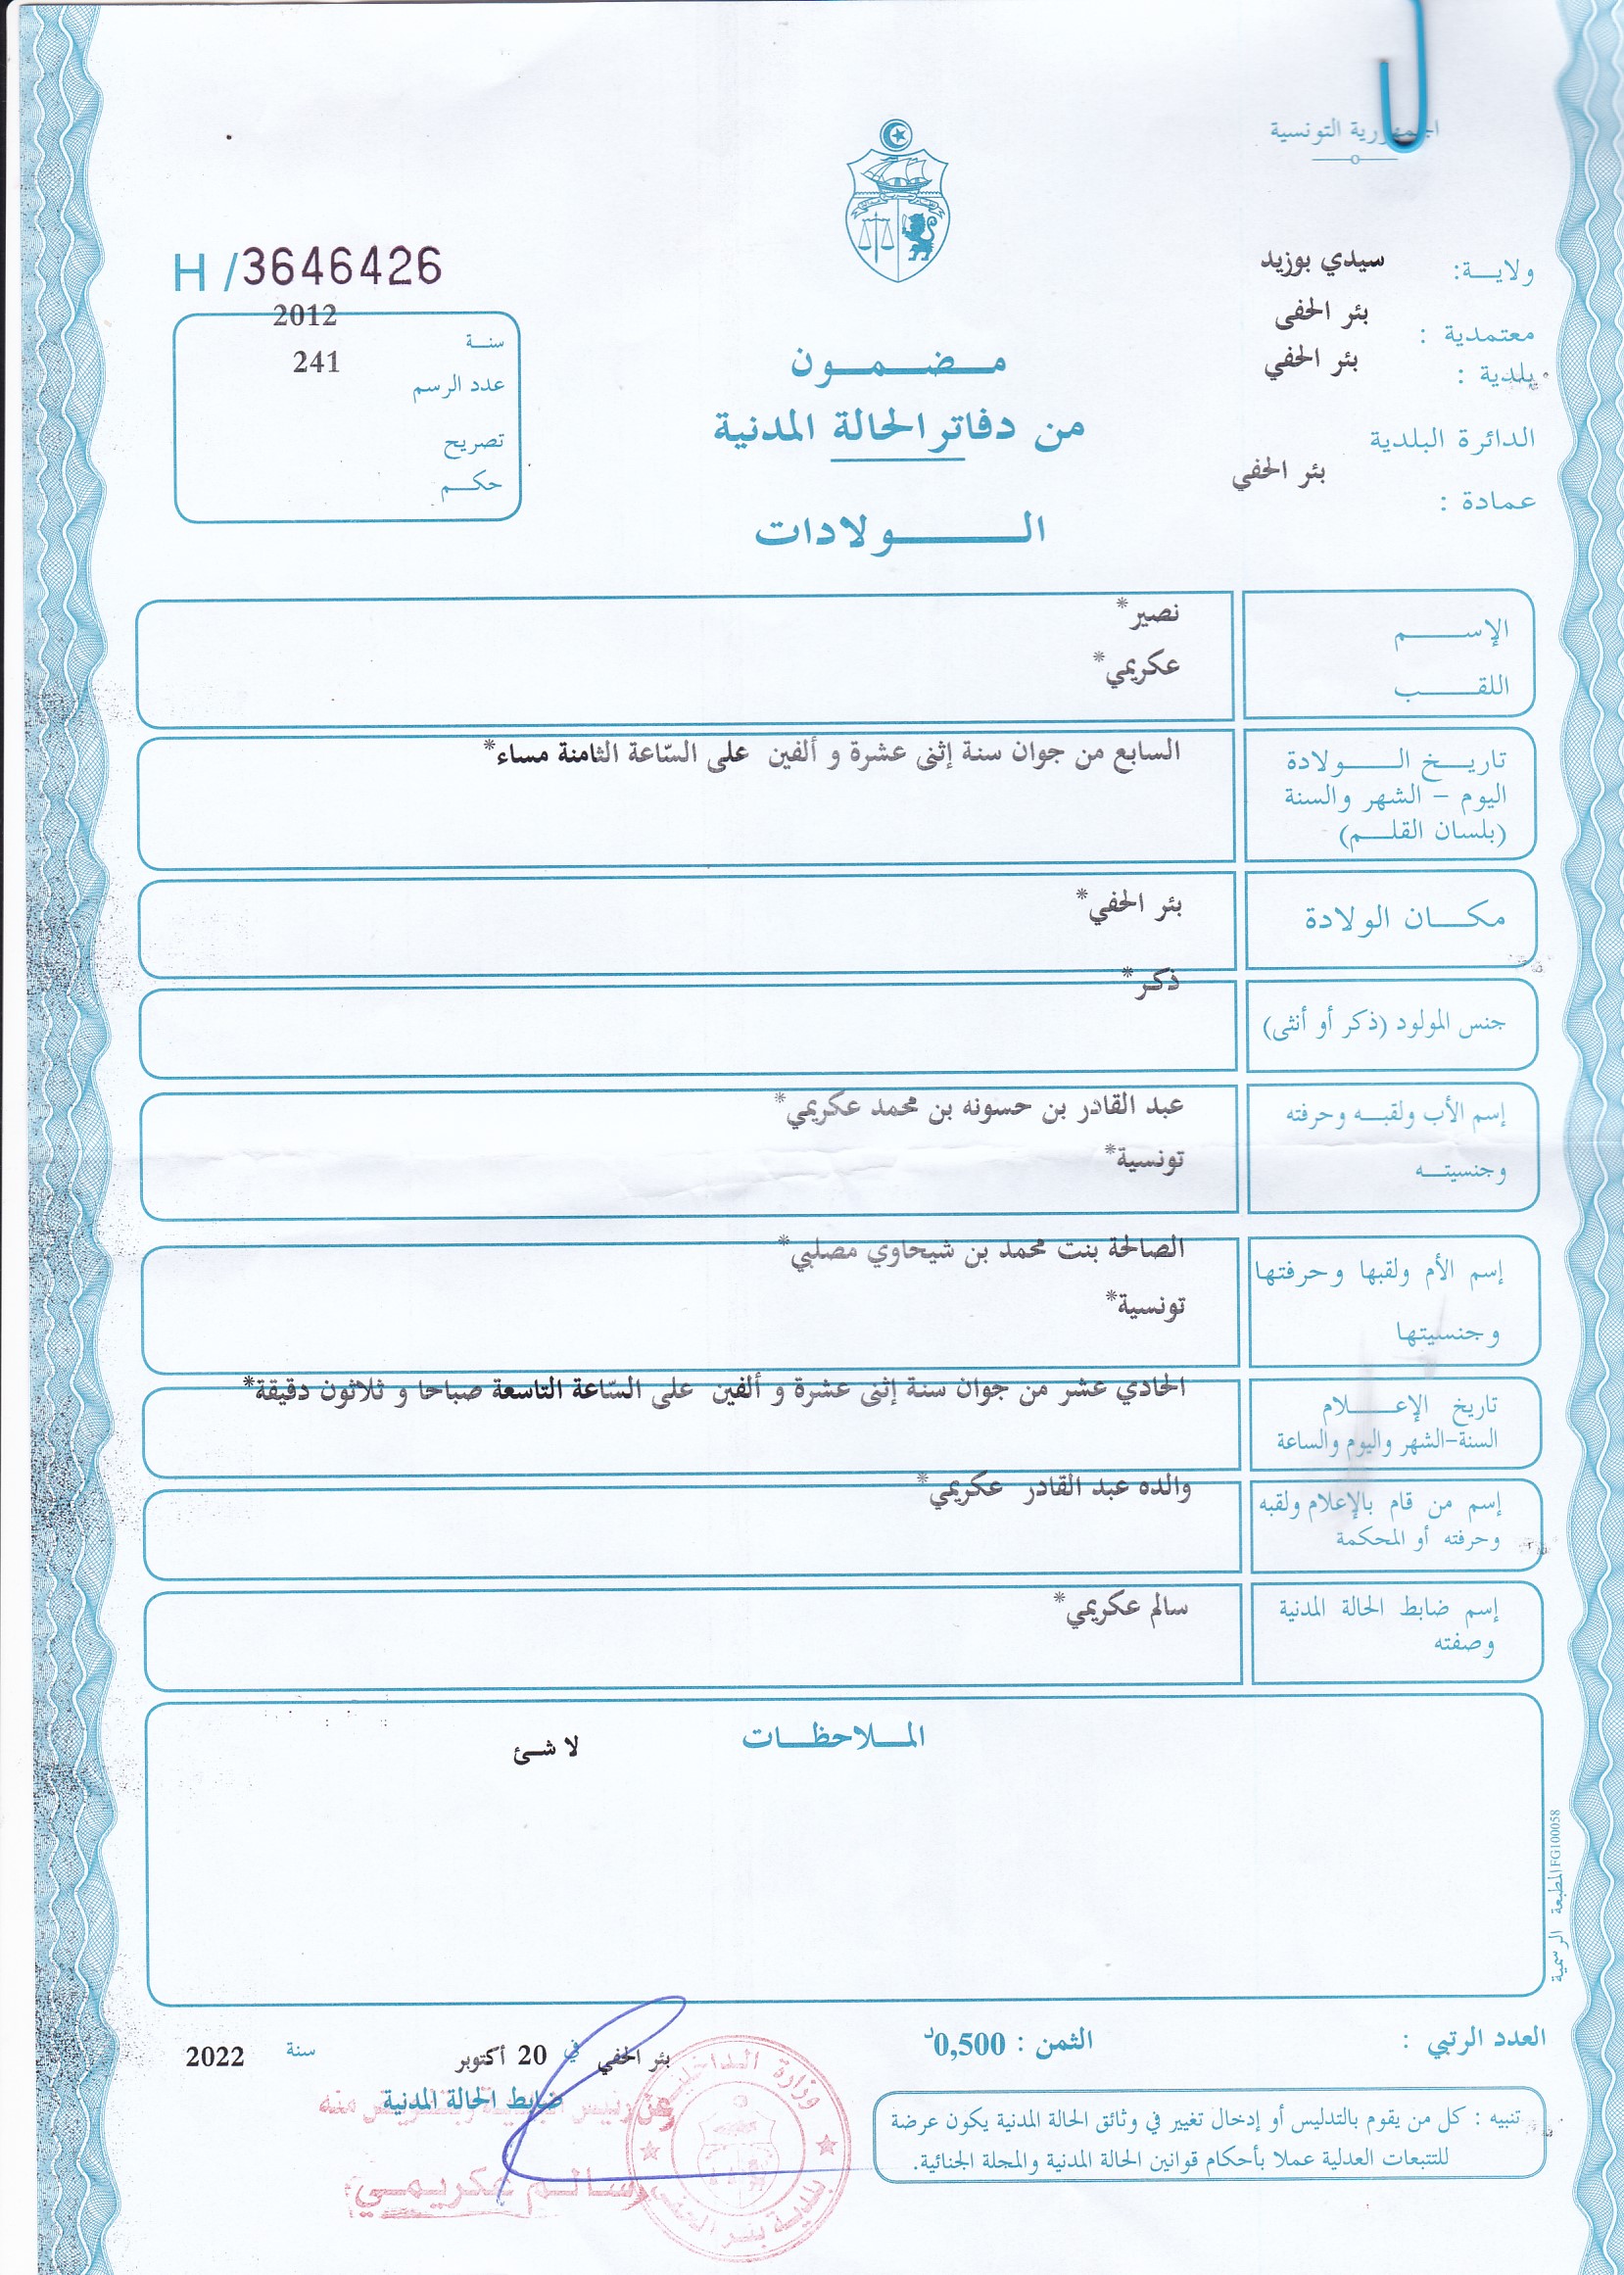 الجمهورية التونسية
ولاية: سيدي بوزيد
معتمدية : بئر الحفى
بلدية : بئر الحفي
الدائرة البلدية
بئر الحفي
عمادة :
H /3646426
سنة 2012
عدد الرسم 241
تصريح
حكم
مضمون
من دفاتر الحالة المدنية
الولادات
الإسم نصير*
اللقب عكريمي*
تاريخ الولادة السابع من جوان سنة إثنى عشرة و ألفين على السّاعة الثامنة مساء*
اليوم - الشهر والسنة
(بلسان القلم)
مكان الولادة بئر الحفي*
جنس المولود (ذكر أو أنثى) ذكر*
إسم الأب ولقبه وحرفته عبد القادر بن حسونه بن محمد عكريمي*
وجنسيته تونسية*
إسم الأم ولقبها وحرفتها الصالحة بنت محمد بن شيحاوي مصلبي*
وجنسيتها تونسية*
تاريخ الإعلام الحادي عشر من جوان سنة إثنى عشرة و ألفين على السّاعة التاسعة صباحا و ثلاثون دقيقة*
السنة-الشهر واليوم والساعة
إسم من قام بالإعلام ولقبه والده عبد القادر عكريمي*
وحرفته أو المحكمة
إسم ضابط الحالة المدنية سالم عكريمي*
وصفته
الملاحظات
لا شئ
المطبعة الرسمية FG100058
العدد الرتبي :
الثمن : 0,500د
بئر الحفي في 20 أكتوبر سنة 2022
ضابط الحالة المدنية
عن رئيس البلدية وبتفويض منه
سالم عكريمي
وزارة الداخلية
بلدية بئر الحفي
تنبيه : كل من يقوم بالتدليس أو إدخال تغيير في وثائق الحالة المدنية يكون عرضة
للتتبعات العدلية عملا بأحكام قوانين الحالة المدنية والمجلة الجنائية.